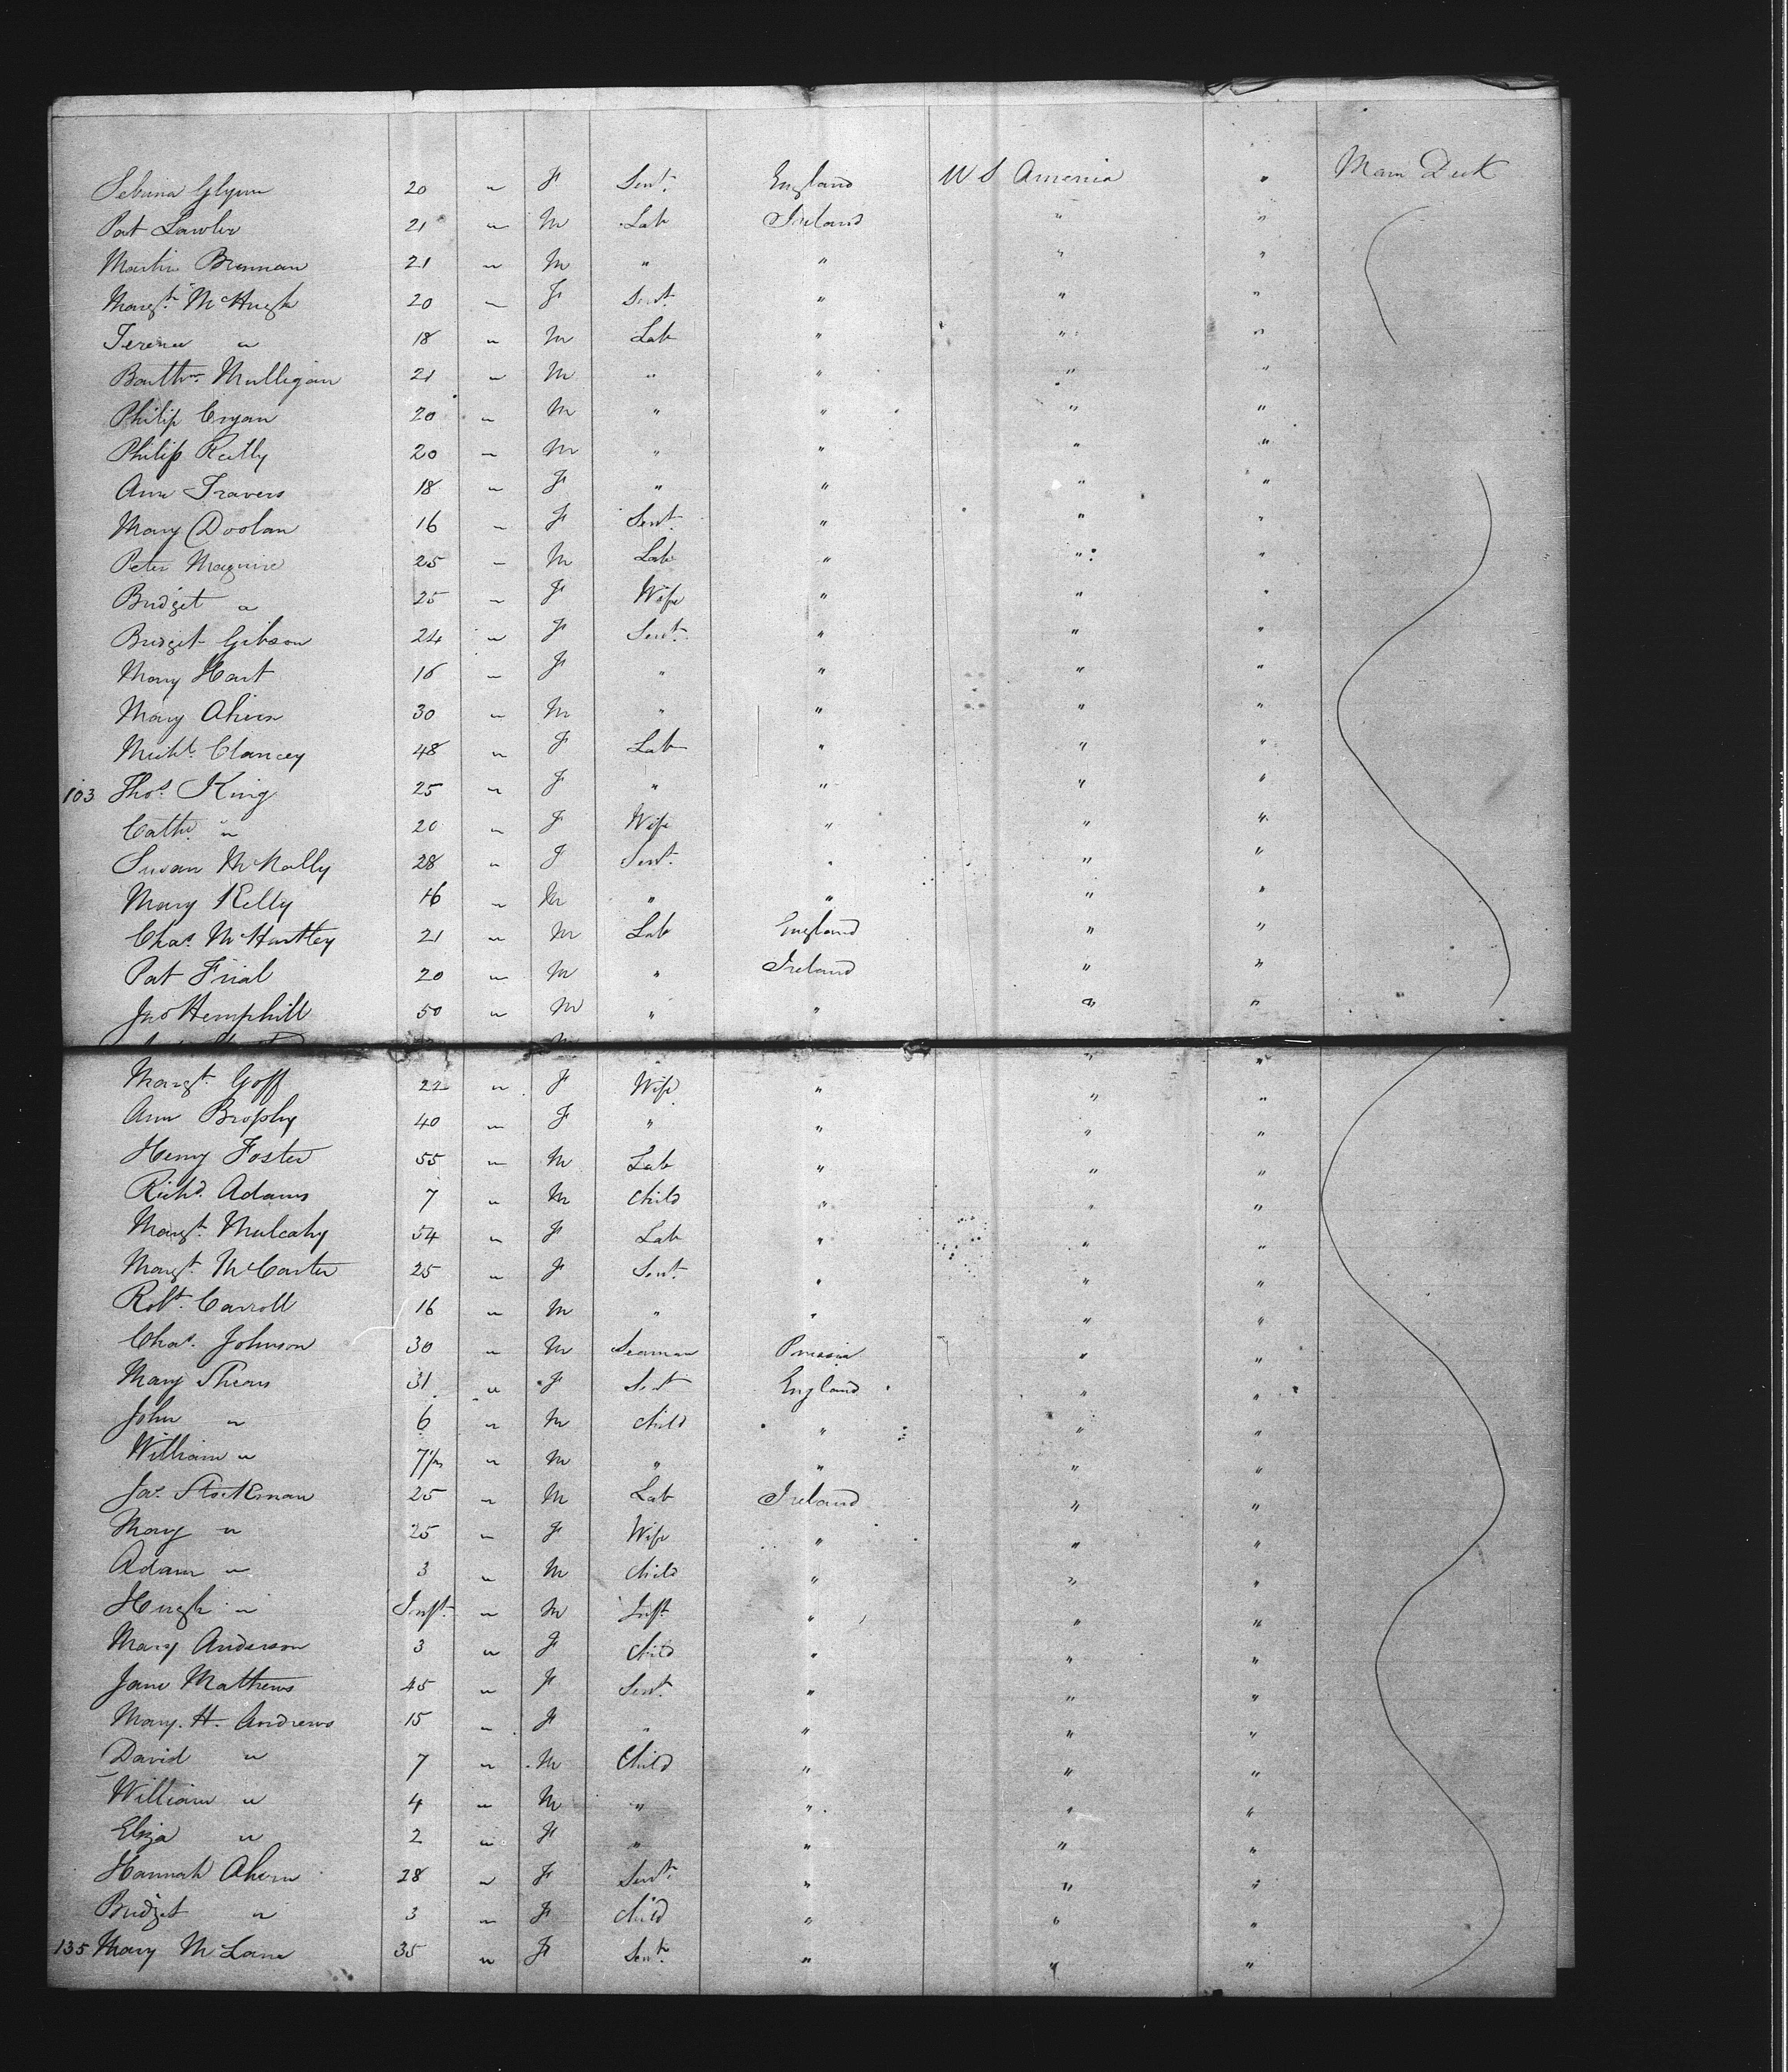 Glynn 20 " F Servt. England U S America " Main Deck
Pat Lawler 21 " M Lab Ireland " "
Martin Brennan 21 " M " " " "
Margt. McHugh 20 " F Servt. " " "
Terence " 18 " M Lab " " "
Barthw. Mulligan 21 " M " " " "
Philip Cryan 20 " M " " " "
Philip Reilly 20 " M " " " "
Ann Travers 18 " F " " " "
Mary Doolan 16 " F Servt. " " "
Peter Maguire 25 " M Lab " " "
Bridget " 25 " F Wife " " "
Bridget Gibson 24 " F Servt. " " "
Mary Hart 16 " F " " " "
Mary Ahern 30 " M " " " "
Michl. Clancey 48 " F Lab " " "
103 Thos. King 25 " F " " " "
Cathe. " 20 " F Wife " " "
Susan McNally 28 " F Servt. " " "
Mary Kelly 16 " M " " " "
Chas. McHartley 21 " M Lab England " "
Pat Frial 20 " M " Ireland " "
Jno Hemphill 50 " M " " " "
Margt. Goff 22 " F Wife " " "
Ann Brophy 40 " F " " " "
Henry Foster 55 " M Lab " " "
Richd. Adams 7 " M Child " " "
Margt. Mulcahy 54 " F Lab " " "
Margt. McCarter 25 " F Servt. " " "
Robt. Carroll 16 " M " " " "
Chas. Johnson 30 " M Seaman Prussia " "
Mary Shears 31 " F Servt England " "
John " 6 " M Child " " "
William " " M " " " "
Jas. Stockman 25 " M Lab Ireland " "
Mary " 25 " F Wife " " "
Adam " 3 " M Child " " "
Hugh " Inft. " M Inft " " "
Mary Anderson 3 " F Child " " "
Jane Mathews 45 " F Servt. " " "
Mary. H. Andrews 15 " F " " " "
David " 7 " M Child " " "
William " 4 " M " " " "
Eliza " 2 " F " " " "
Hannah Ahern 28 " F Servt. " " "
Bridget " 3 " F Child " " "
135 Mary McLane 35 " F Servt. " " "